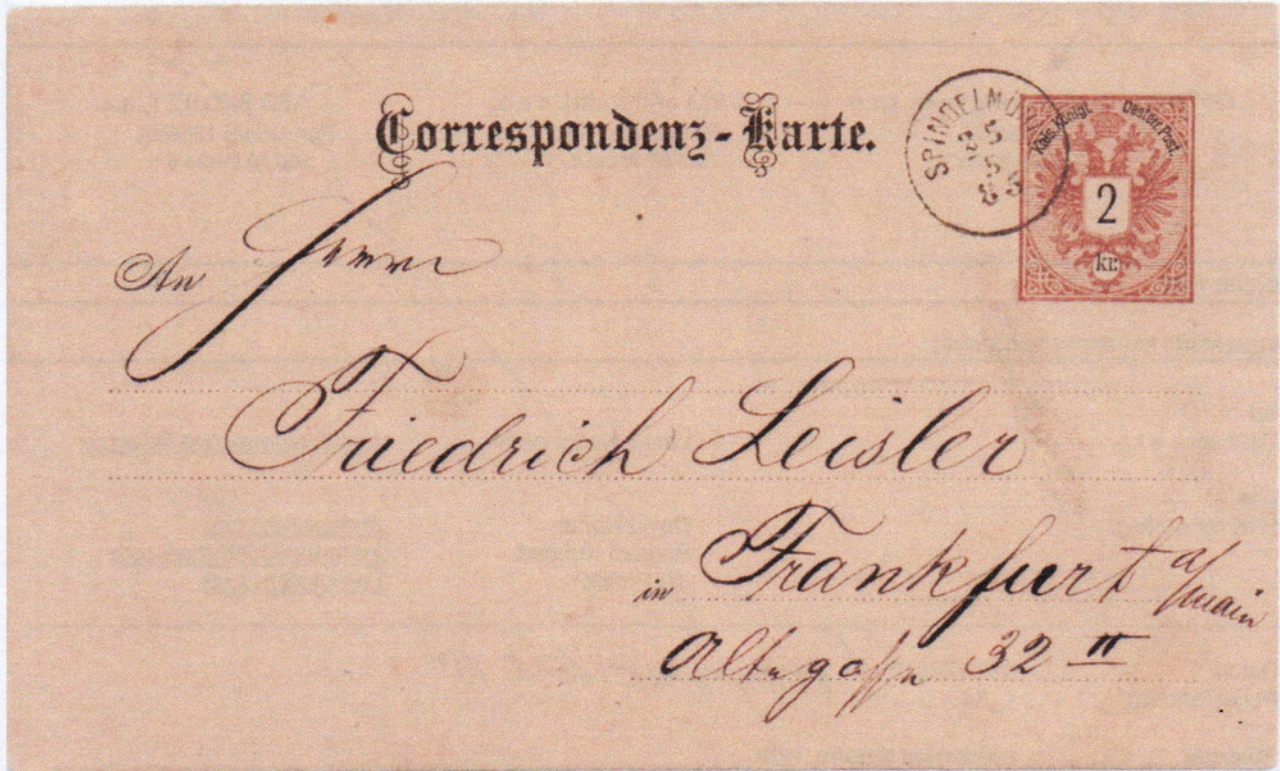 Correspondenz-Karte.
SPINDELMÜ
Kais. Königl. Oesterr. Post.
2
kr.
An Herrn
Friedrich Leisler
in Frankfurt a/Main
Altegasse 32 II